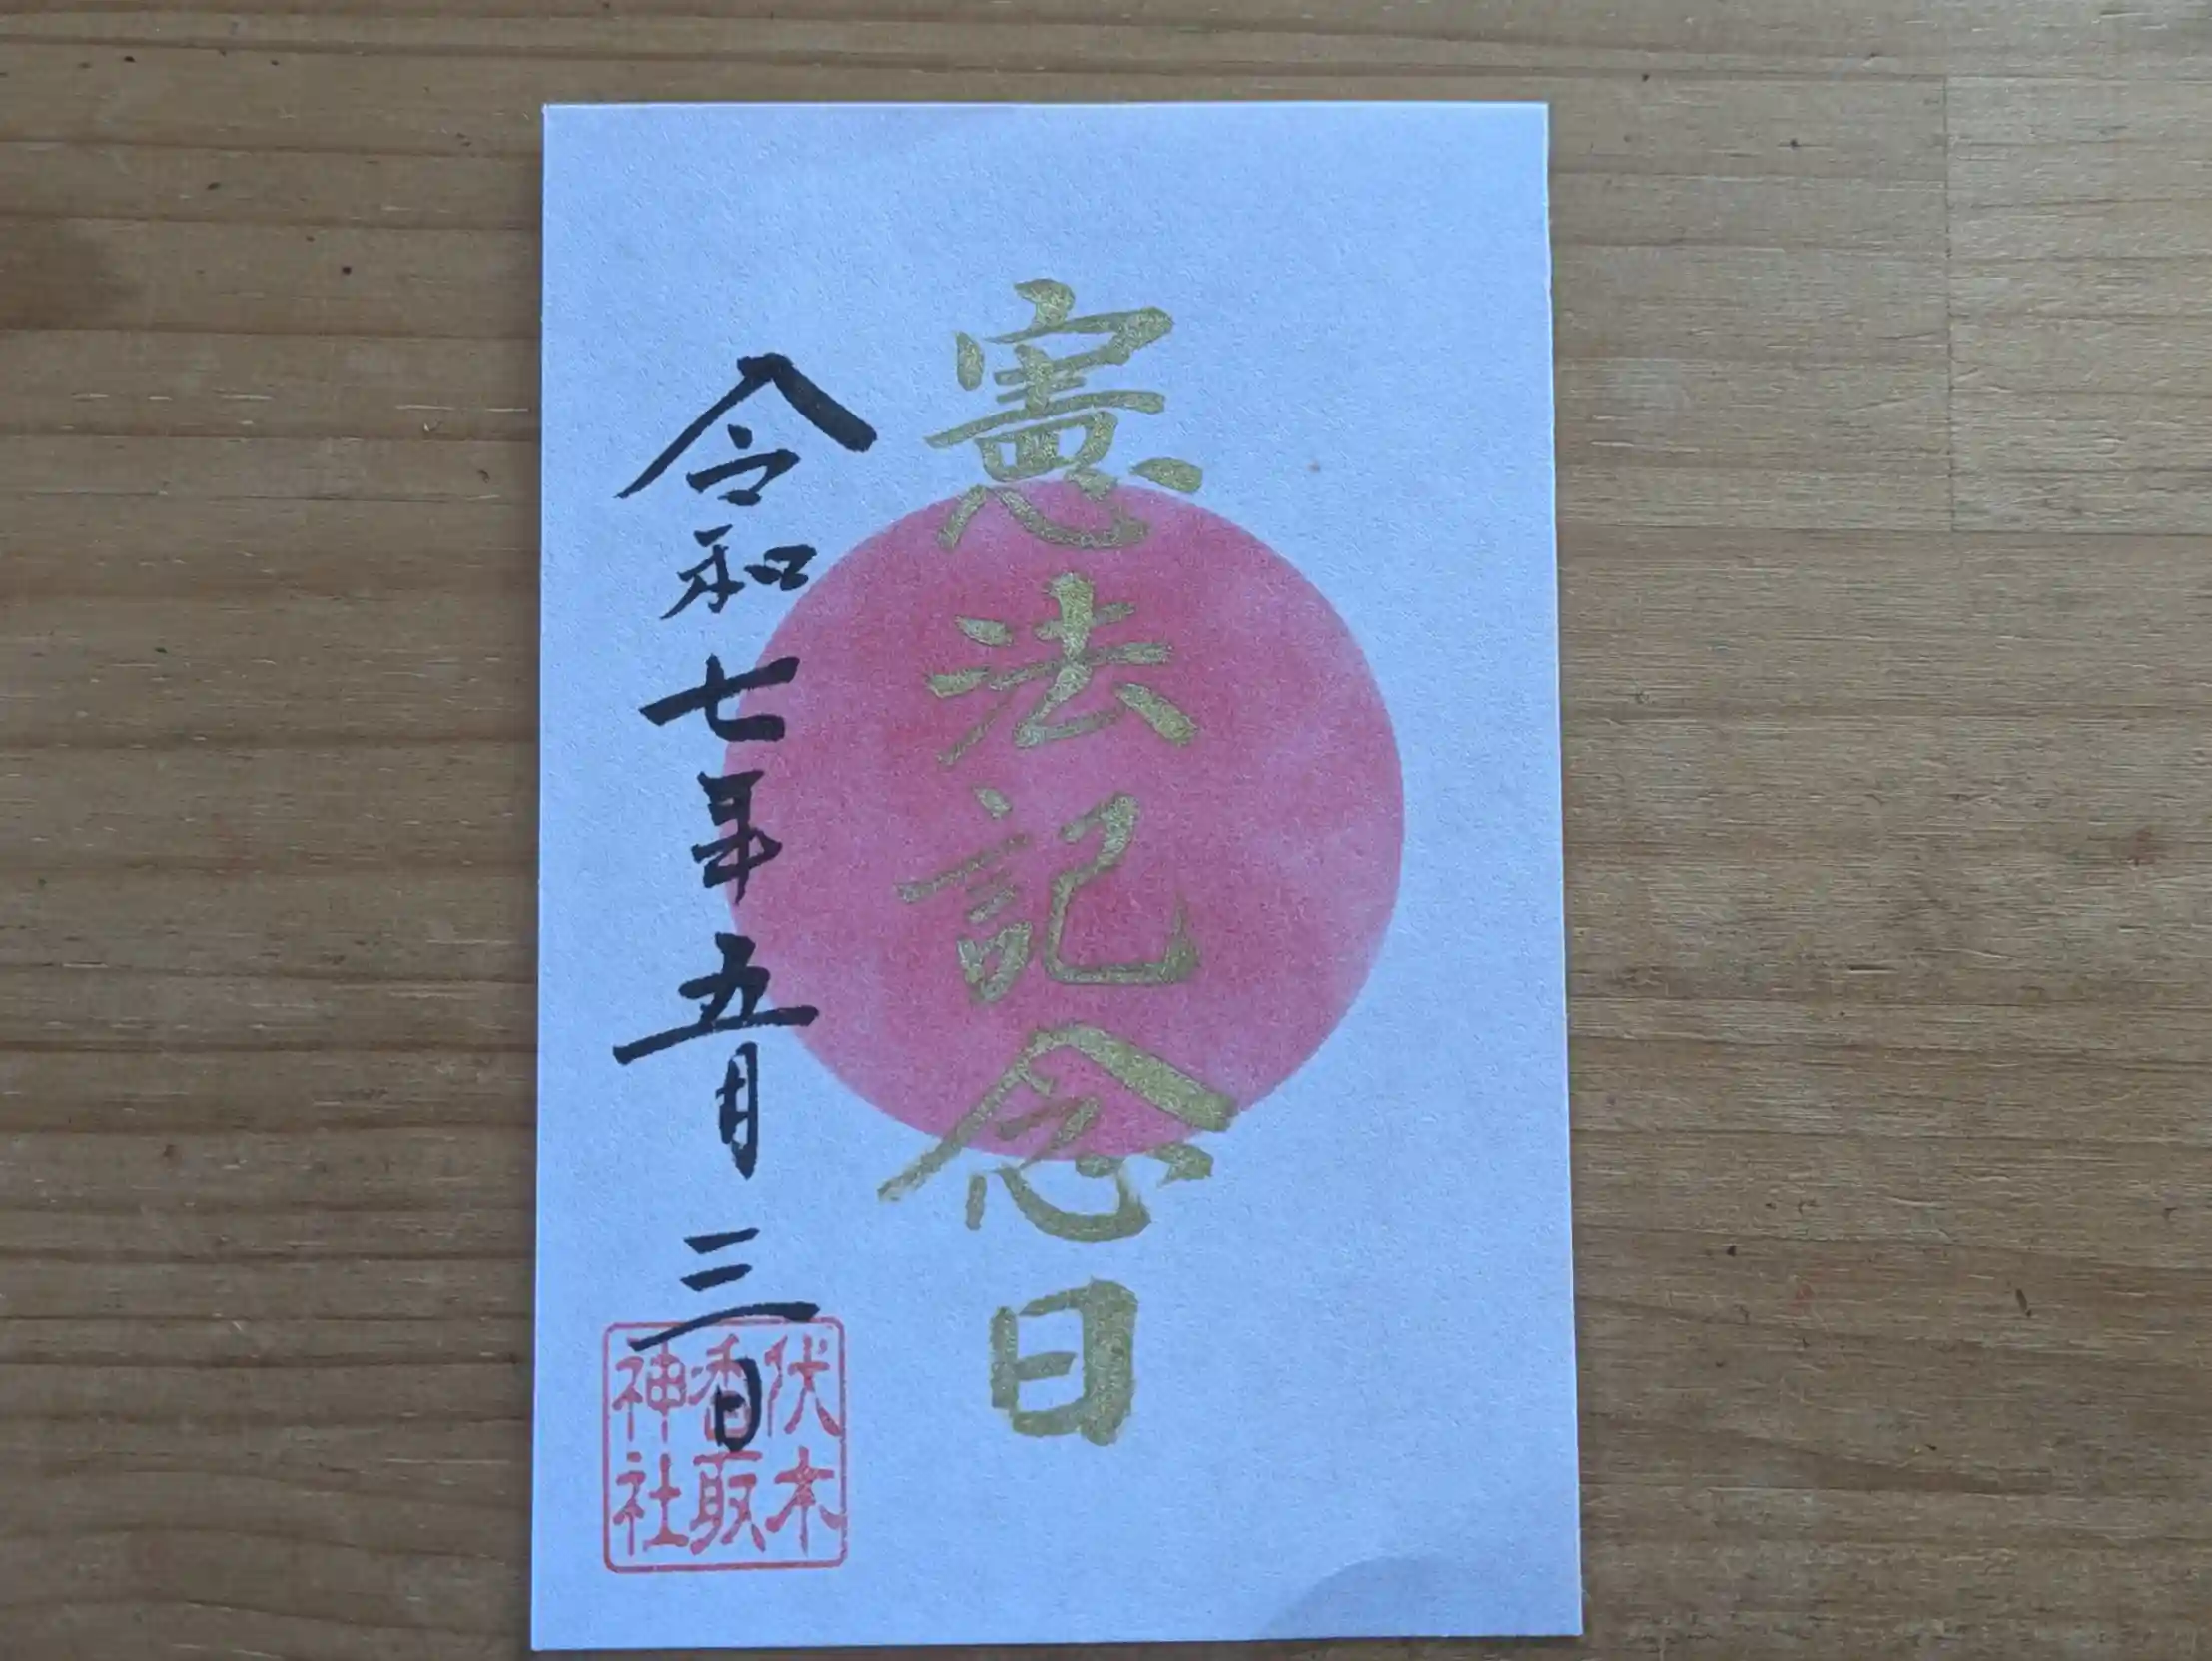 憲法記念日
令和七年五月三日
伏木
香取
神社